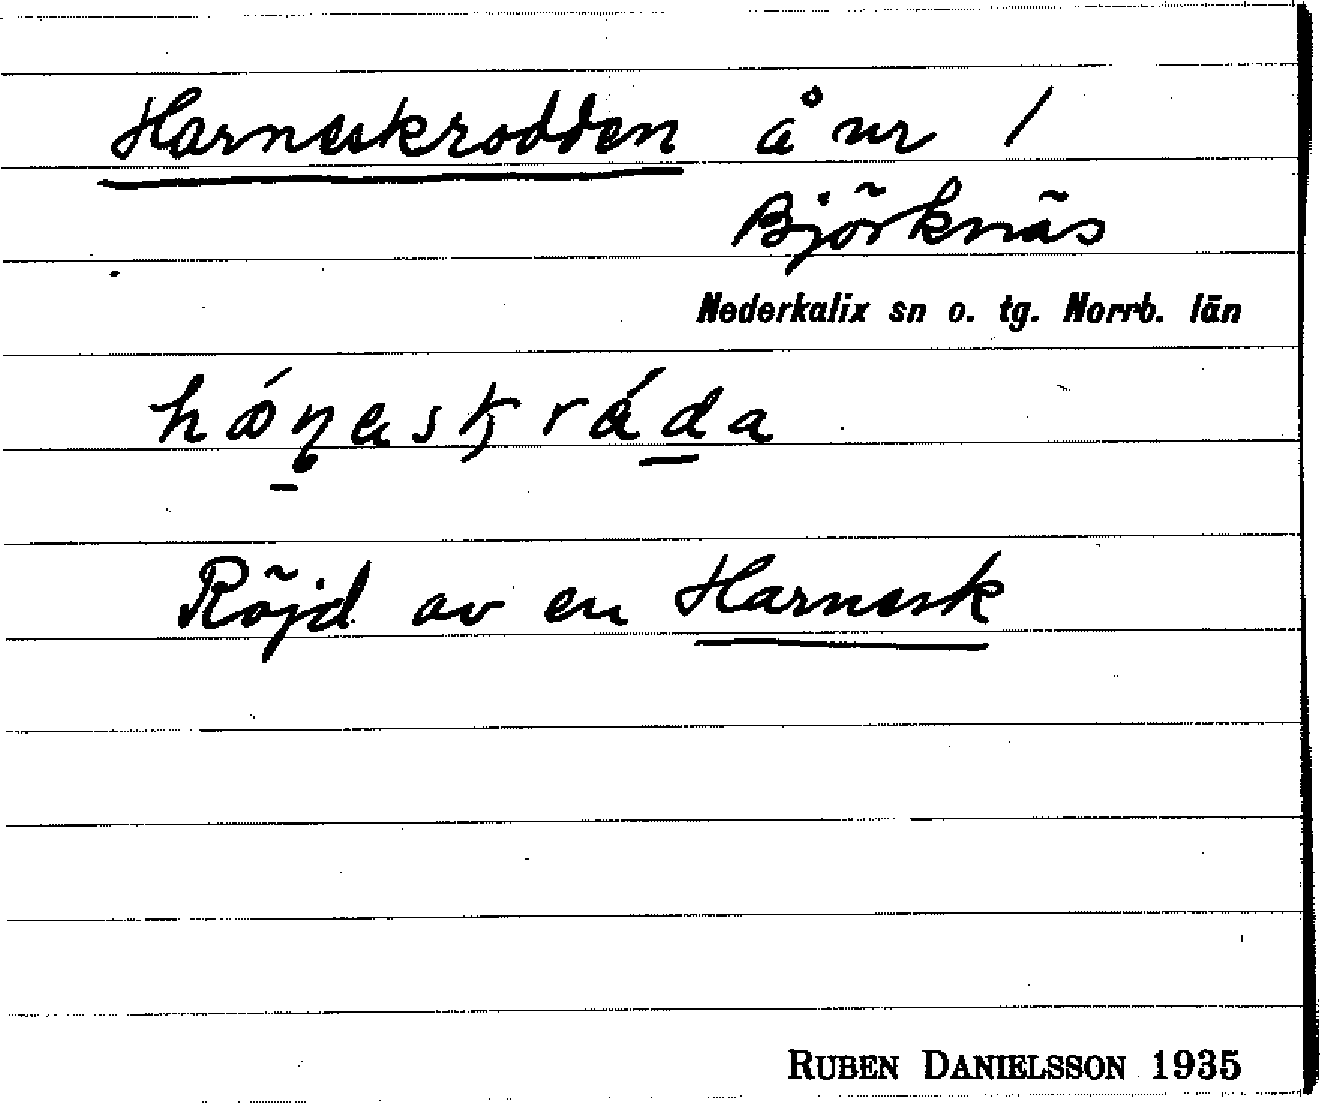 Harneskrodden å nr 1
Björknäs
Nederkalix sn o. tg. Norrb. län
Röjd av en Harnesk
RUBEN DANIELSSON 1935